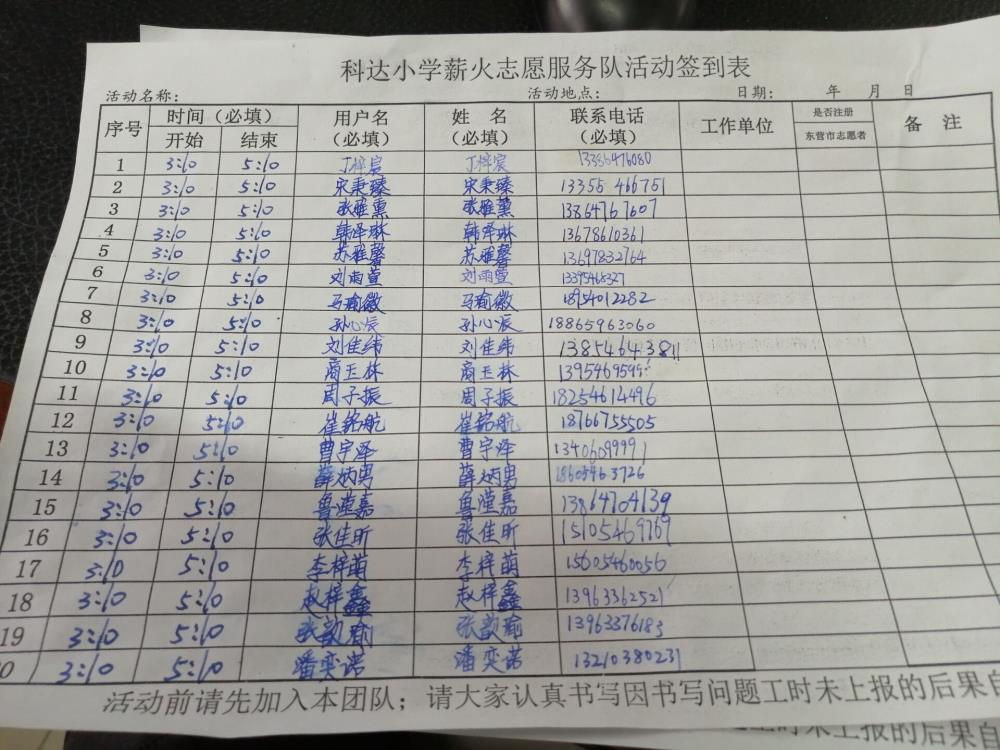 科达小学薪火志愿服务队活动签到表
活动名称： 活动地点： 日期： 年 月 日
序号 时间（必填） 用户名（必填） 姓 名（必填） 联系电话（必填） 工作单位 是否注册东营市志愿者 备 注
开始 结束
1 3:10 5:10 丁梓宸 丁梓宸 13386476080
2 3:10 5:10 宋秉臻 宋秉臻 13355466751
3 3:10 5:10 张雅熏 张雅薰 13864767607
4 3:10 5:10 韩泽琳 韩泽琳 13678610361
5 3:10 5:10 苏雅馨 苏雅馨 13697832764
6 3:10 5:10 刘雨萱 刘雨萱 13395466327
7 3:10 5:10 马瑜徽 马瑜徽 18954012282
8 3:10 5:10 孙心辰 孙心辰 18865963060
9 3:10 5:10 刘佳纬 刘佳纬 13854643811
10 3:10 5:10 商玉林 商玉林
11 3:10 5:10 周子振 周子振 18254614496
12 3:10 5:10 崔铭航 崔铭航 18766755505
13 3:10 5:10 曹宇泽 曹宇泽 13406099991
14 3:10 5:10 薛炳男 薛炳男 18605463726
15 3:10 5:10 鲁滢嘉 鲁滢嘉 13864704139
16 3:10 5:10 张佳昕 张佳昕 15105469769
17 3:10 5:10 李梓萌 李梓萌 15605460056
18 3:10 5:10 赵梓鑫 赵梓鑫 13963362521
19 3:10 5:10 张歆瑜 张歆瑜 13963376183
0 3:10 5:10 潘奕诺 潘奕诺 13210380231
活动前请先加入本团队；请大家认真书写因书写问题工时未上报的后果自
工时未上报的后果自